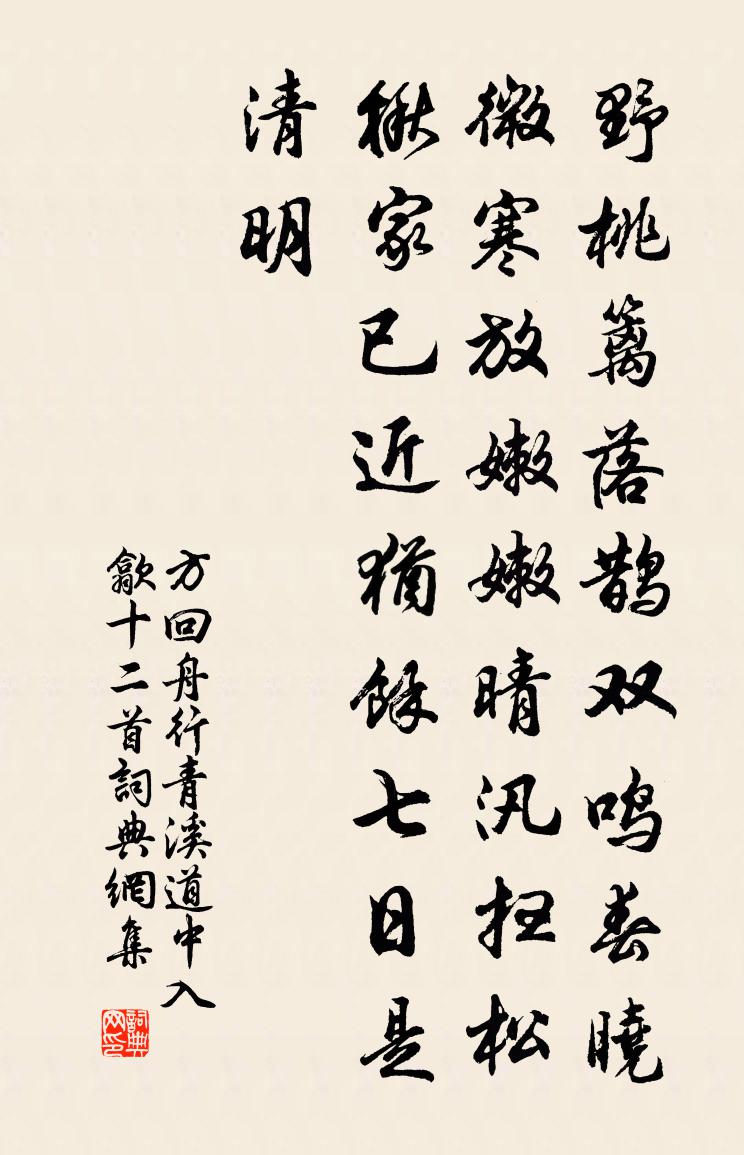 野桃篱落鹊双鸣春晓
微寒放嫩嫩晴汛扫松
楸家已近犹馀七日是
清明
方回舟行青溪道中入
歙十二首詞典網集
詞典网印